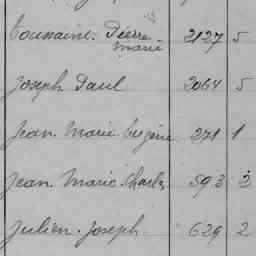 Toussaint. Pierre 2127 5
Marie
Joseph Paul 2064 5
Jean. Marie. Eugène 271 1
Jean. Marie. Charles 593 2
Julien. Joseph. 629 2